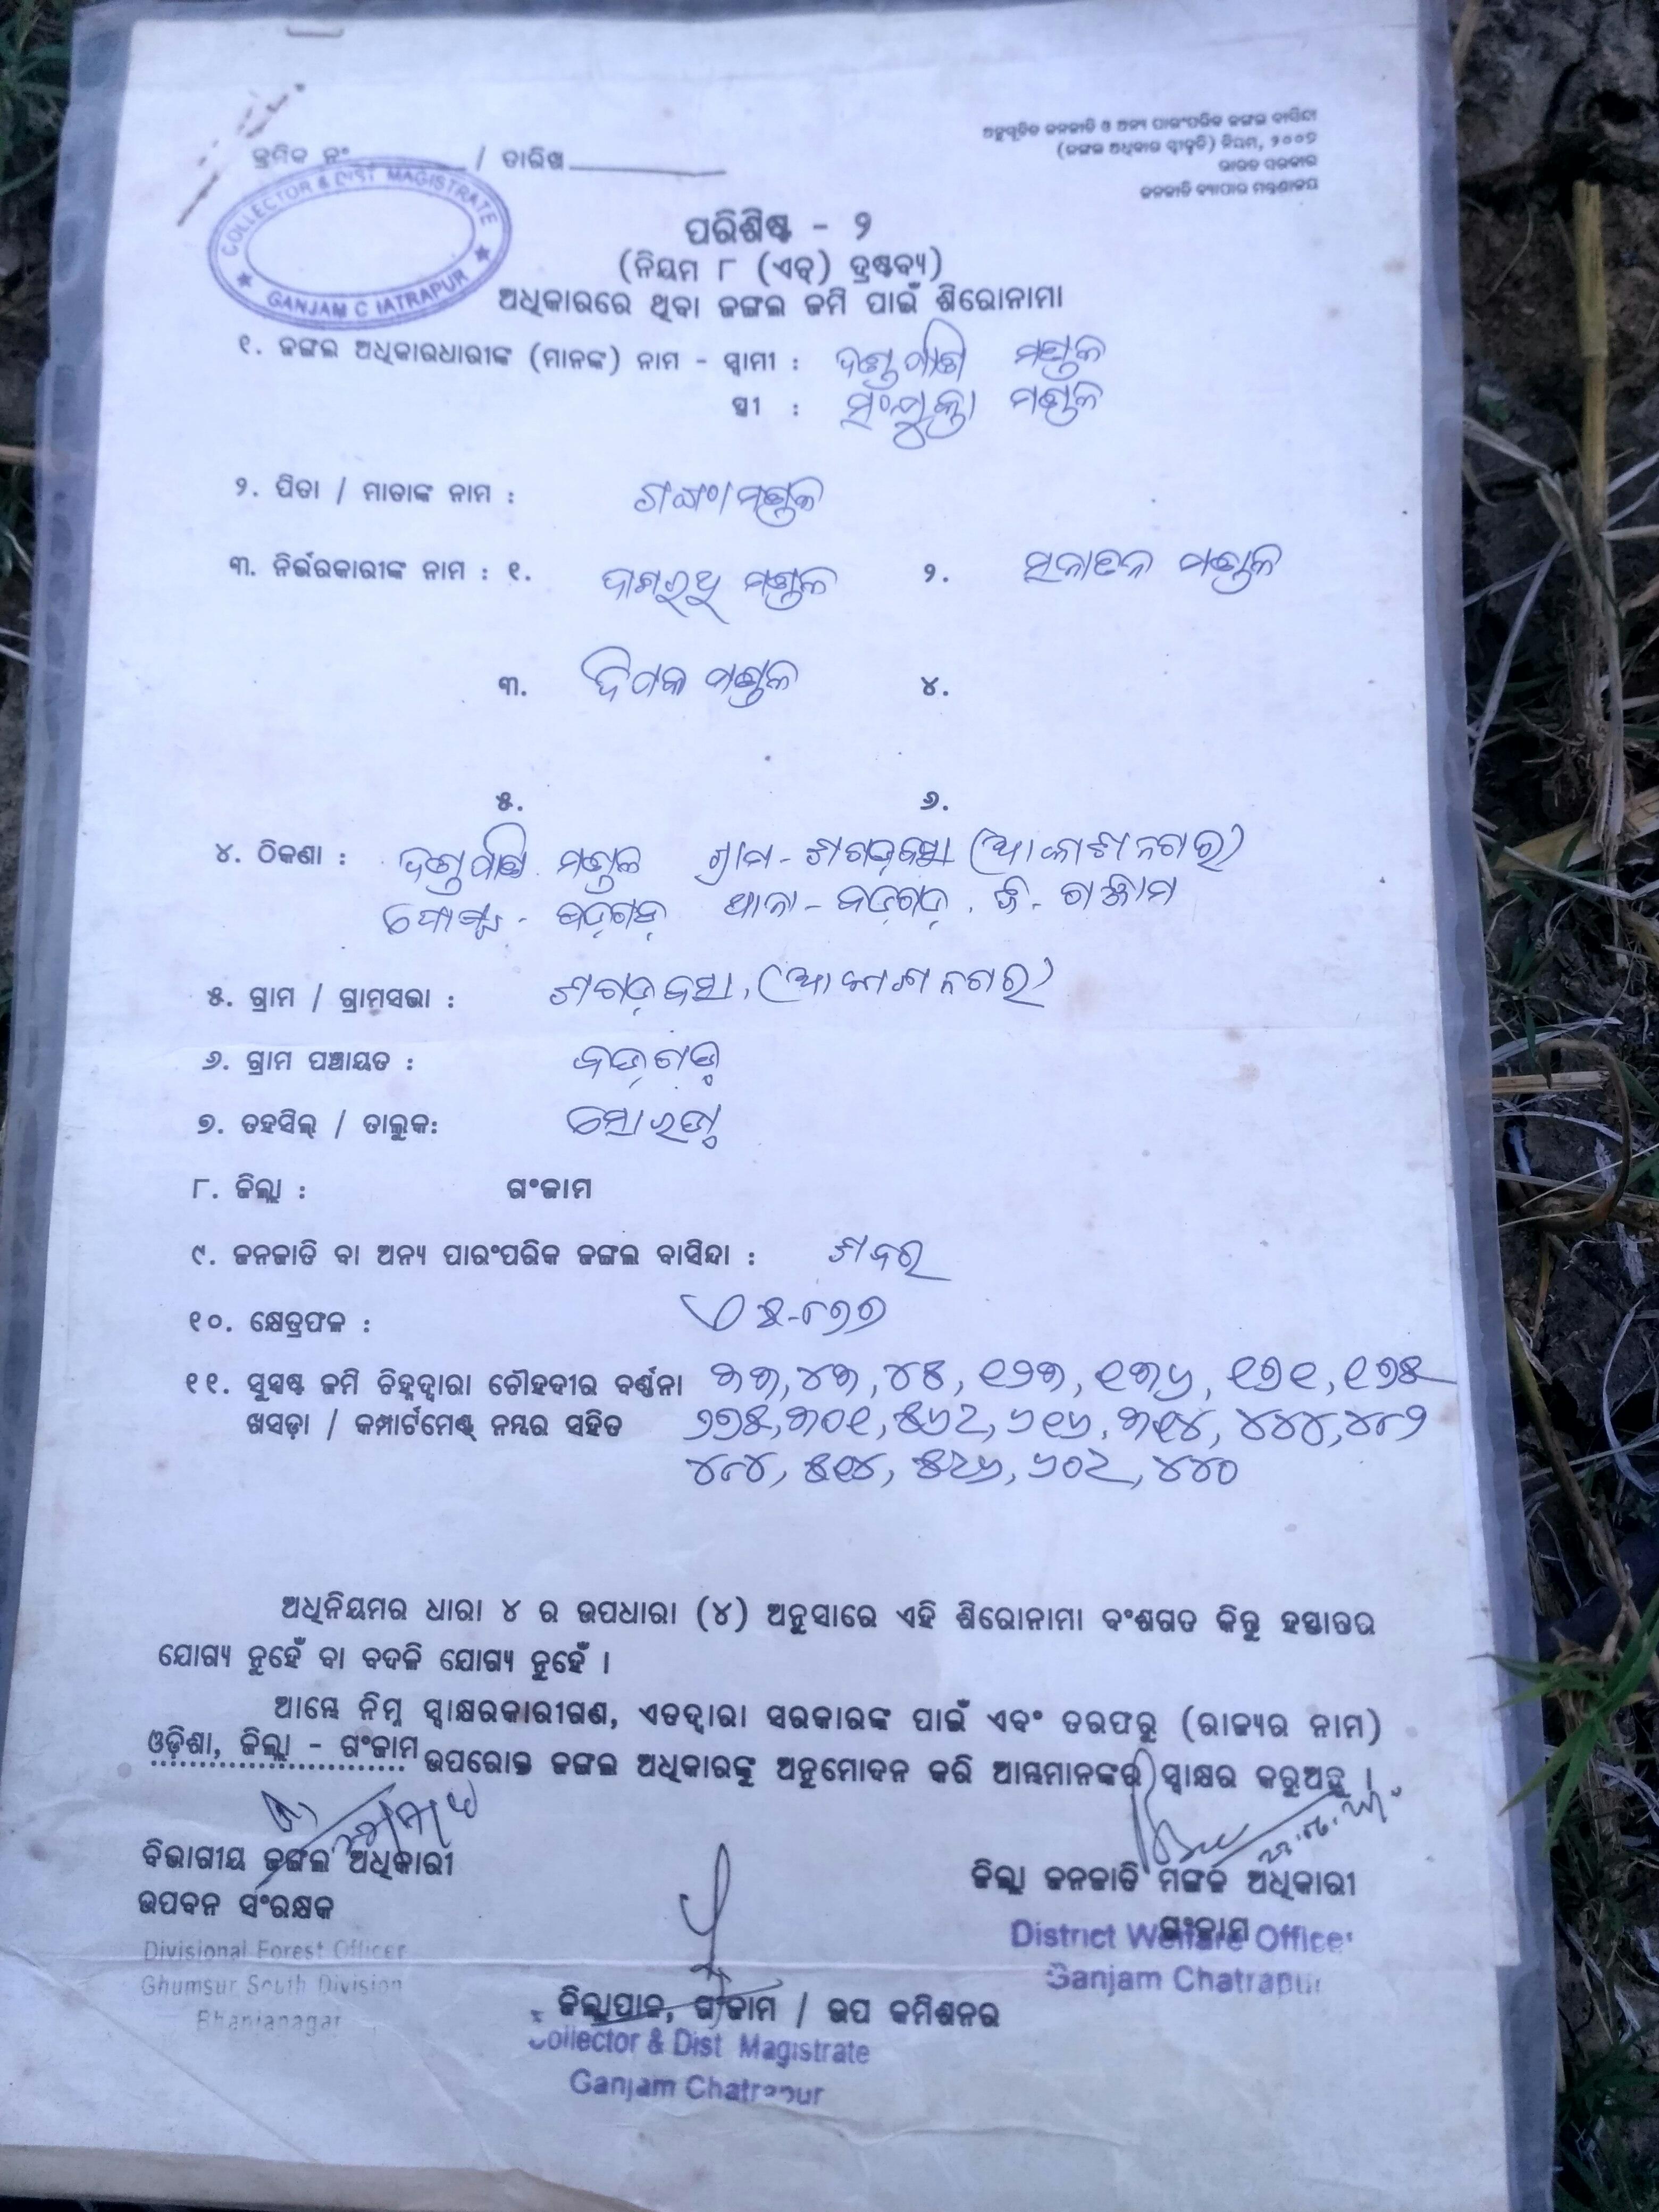 ଅନୁସୂଚିତ ଜନଜାତି ଓ ଅନ୍ୟ ପାରଂପରିକ ଜଙ୍ଗଲ ବାସିନ୍ଦା
(ଜଙ୍ଗଲ ଅଧିକାର ସ୍ୱୀକୃତି) ନିୟମ, ୨୦୦୭
ଭାରତ ସରକାର
ଜନଜାତି ବ୍ୟାପାର ମନ୍ତ୍ରଣାଳୟ
କ୍ରମିକ ନଂ / ତାରିଖ
COLLECTOR & DIST MAGISTRATE
GANJAM C IATRAPUR
ପରିଶିଷ୍ଟ - ୨
(ନିୟମ ୮ (ଏଚ୍) ଦ୍ରଷ୍ଟବ୍ୟ)
ଅଧିକାରରେ ଥିବା ଜଙ୍ଗଲ ଜମି ପାଇଁ ଶିରୋନାମା
୧. ଜଙ୍ଗଲ ଅଧିକାରଧାରୀଙ୍କ (ମାନଙ୍କ) ନାମ - ସ୍ୱାମୀ : ଦଣ୍ଡପାଣି ମଣ୍ଡଳ
ସ୍ତ୍ରୀ : ସଂଯୁକ୍ତା ମଣ୍ଡଳ
୨. ପିତା / ମାତାଙ୍କ ନାମ : ମଣ୍ଡଳ
୩. ନିର୍ଭରକାରୀଙ୍କ ନାମ : ୧. ଦାଶରଥି ମଣ୍ଡଳ ୨. ସନାତନ ମଣ୍ଡଳ
୩. ମଣ୍ଡଳ ୪.
୫. ୬.
୪. ଠିକଣା : ଦଣ୍ଡପାଣି ମଣ୍ଡଳ ଗ୍ରାମ - ଶଗଡ଼ବସା (ଆକାଶ ନଗର)
ପୋଷ୍ଟ - ବଡ଼ଗଡ଼ ଥାନା - ବଡ଼ଗଡ଼. ଜି - ଗଞ୍ଜାମ
୫. ଗ୍ରାମ / ଗ୍ରାମସଭା : ଶଗଡ଼ବସା, (ଆକାଶ ନଗର)
୬. ଗ୍ରାମ ପଞ୍ଚାୟତ : ବଡ଼ଗଡ଼
୭. ତହସିଲ୍ / ତାଲୁକ: ସୋରଡ଼ା
୮. ଜିଲ୍ଲା : ଗଂଜାମ
୯. ଜନଜାତି ବା ଅନ୍ୟ ପାରଂପରିକ ଜଙ୍ଗଲ ବାସିନ୍ଦା : ଶବର
୧୦. କ୍ଷେତ୍ରଫଳ : ୫-୮୭୭
୧୧. ସୁସ୍ପଷ୍ଟ ଜମି ଚିହ୍ନଦ୍ୱାରା ଚୌହଦୀର ବର୍ଣ୍ଣନା ୩୩, ୪୩, ୪୫, ୧୨୩, ୧୩୬, ୧୭୧, ୧୭୫
ଖସଡ଼ା / କମ୍ପାର୍ଟମେଣ୍ଟ୍ ନମ୍ବର ସହିତ ୨୭୫, ୩୦୧, ୫୬୨, ୬୧୬, ୩୧୪, ୪୪୪, ୪୮୨
୪୮୪, ୫୧୪, ୫୨୬, ୬୦୨, ୪୪୦
ଅଧିନିୟମର ଧାରା ୪ ର ଉପଧାରା (୪) ଅନୁସାରେ ଏହି ଶିରୋନାମା ବଂଶଗତ କିନ୍ତୁ ହସ୍ତାନ୍ତର
ଯୋଗ୍ୟ ନୁହେଁ ବା ବଦଳି ଯୋଗ୍ୟ ନୁହେଁ ।
ଆମ୍ଭେ ନିମ୍ନ ସ୍ୱାକ୍ଷରକାରୀଗଣ, ଏତଦ୍ୱାରା ସରକାରଙ୍କ ପାଇଁ ଏବଂ ତରଫରୁ (ରାଜ୍ୟର ନାମ)
ଓଡ଼ିଶା, ଜିଲ୍ଲା - ଗଂଜାମ ଉପରୋକ୍ତ ଜଙ୍ଗଲ ଅଧିକାରଙ୍କୁ ଅନୁମୋଦନ କରି ଆମ୍ଭମାନଙ୍କର ସ୍ୱାକ୍ଷର କରୁଅଛୁ ।
ବିଭାଗୀୟ ଜଙ୍ଗଲ ଅଧିକାରୀ
ଉପବନ ସଂରକ୍ଷକ
Divisional Forest Officer
Ghumsur South Division
Bhanjanagar
ଜିଲ୍ଲା ଜନଜାତି ମଙ୍ଗଳ ଅଧିକାରୀ
ଗଂଜାମ
District Welfare Officer
Ganjam Chatrapur
ଜିଲ୍ଲାପାଳ, ଗଂଜାମ / ଉପ କମିଶନର
Collector & Dist Magistrate
Ganjam Chatrapur